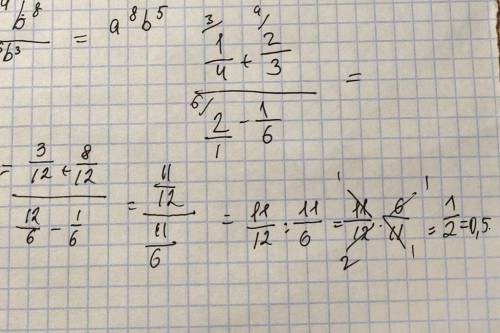 b⁸ / b³ = a⁸b⁵
(³⁄ 1/4 + ⁴⁄ 2/3) / (⁶⁄ 2/1 - 1/6) =
= (3/12 + 8/12) / (12/6 - 1/6) = (11/12) / (11/6) = 11/12 : 11/6 = 11/12 · 6/11 = 1/2 = 0,5.
1 1
2 1